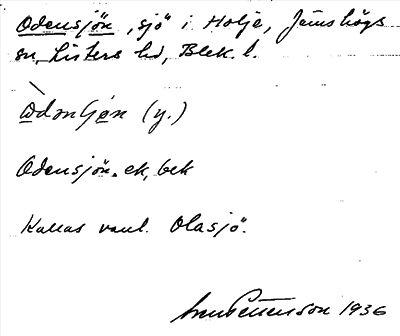 Odensjön, sjö i Holje, Jämshögs
sn, Listers hd, Blek. l.
(y.)
Odensjön. ek, bek
Kallas vanl. Olasjö.
1936